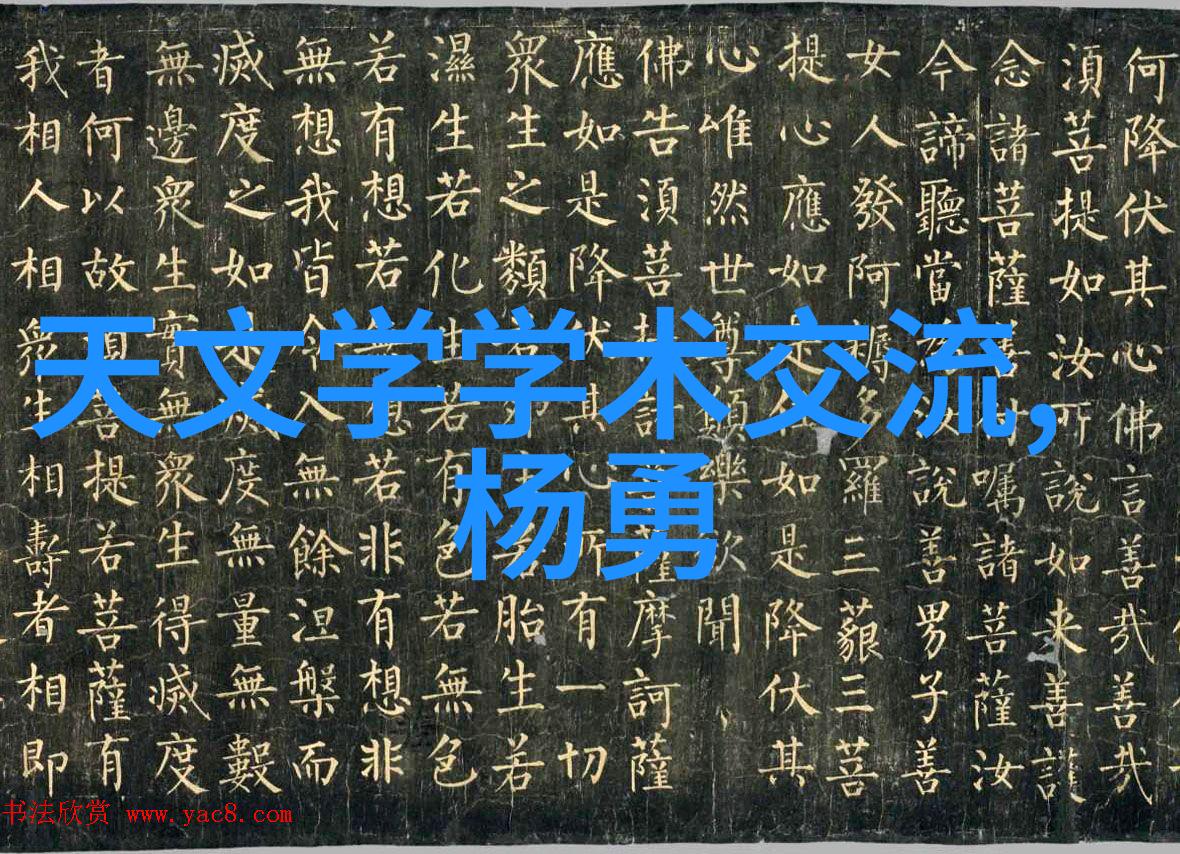 何降伏其心佛言善哉善哉
須菩提如汝所說如来善護
念諸菩薩善付嘱諸菩薩汝
今諦聽當為汝說善男子善
女人發阿耨多羅三藐三菩
提心應如是住如是降伏其
心唯然世尊願樂欲聞
佛告須菩提諸菩薩摩訶薩
應如是降伏其心所有一切
眾生之類若卵生若胎生若
濕生若化生若有色若無色
若有想若無想若非有想非
無想我皆令入無餘涅槃而
滅度之如是滅度無量無數
無邊眾生實無眾生得滅度
者何以故須菩提若菩薩有
我相人相眾生相壽者相即
天文学学术交流,
杨勇
书法欣赏 www.yac8.com